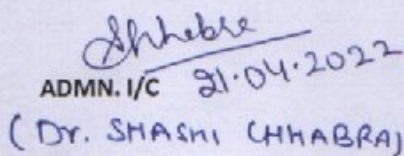 Shhabra
ADMN. I/C 21.04.2022
(Dr. SHASHI CHHABRA)